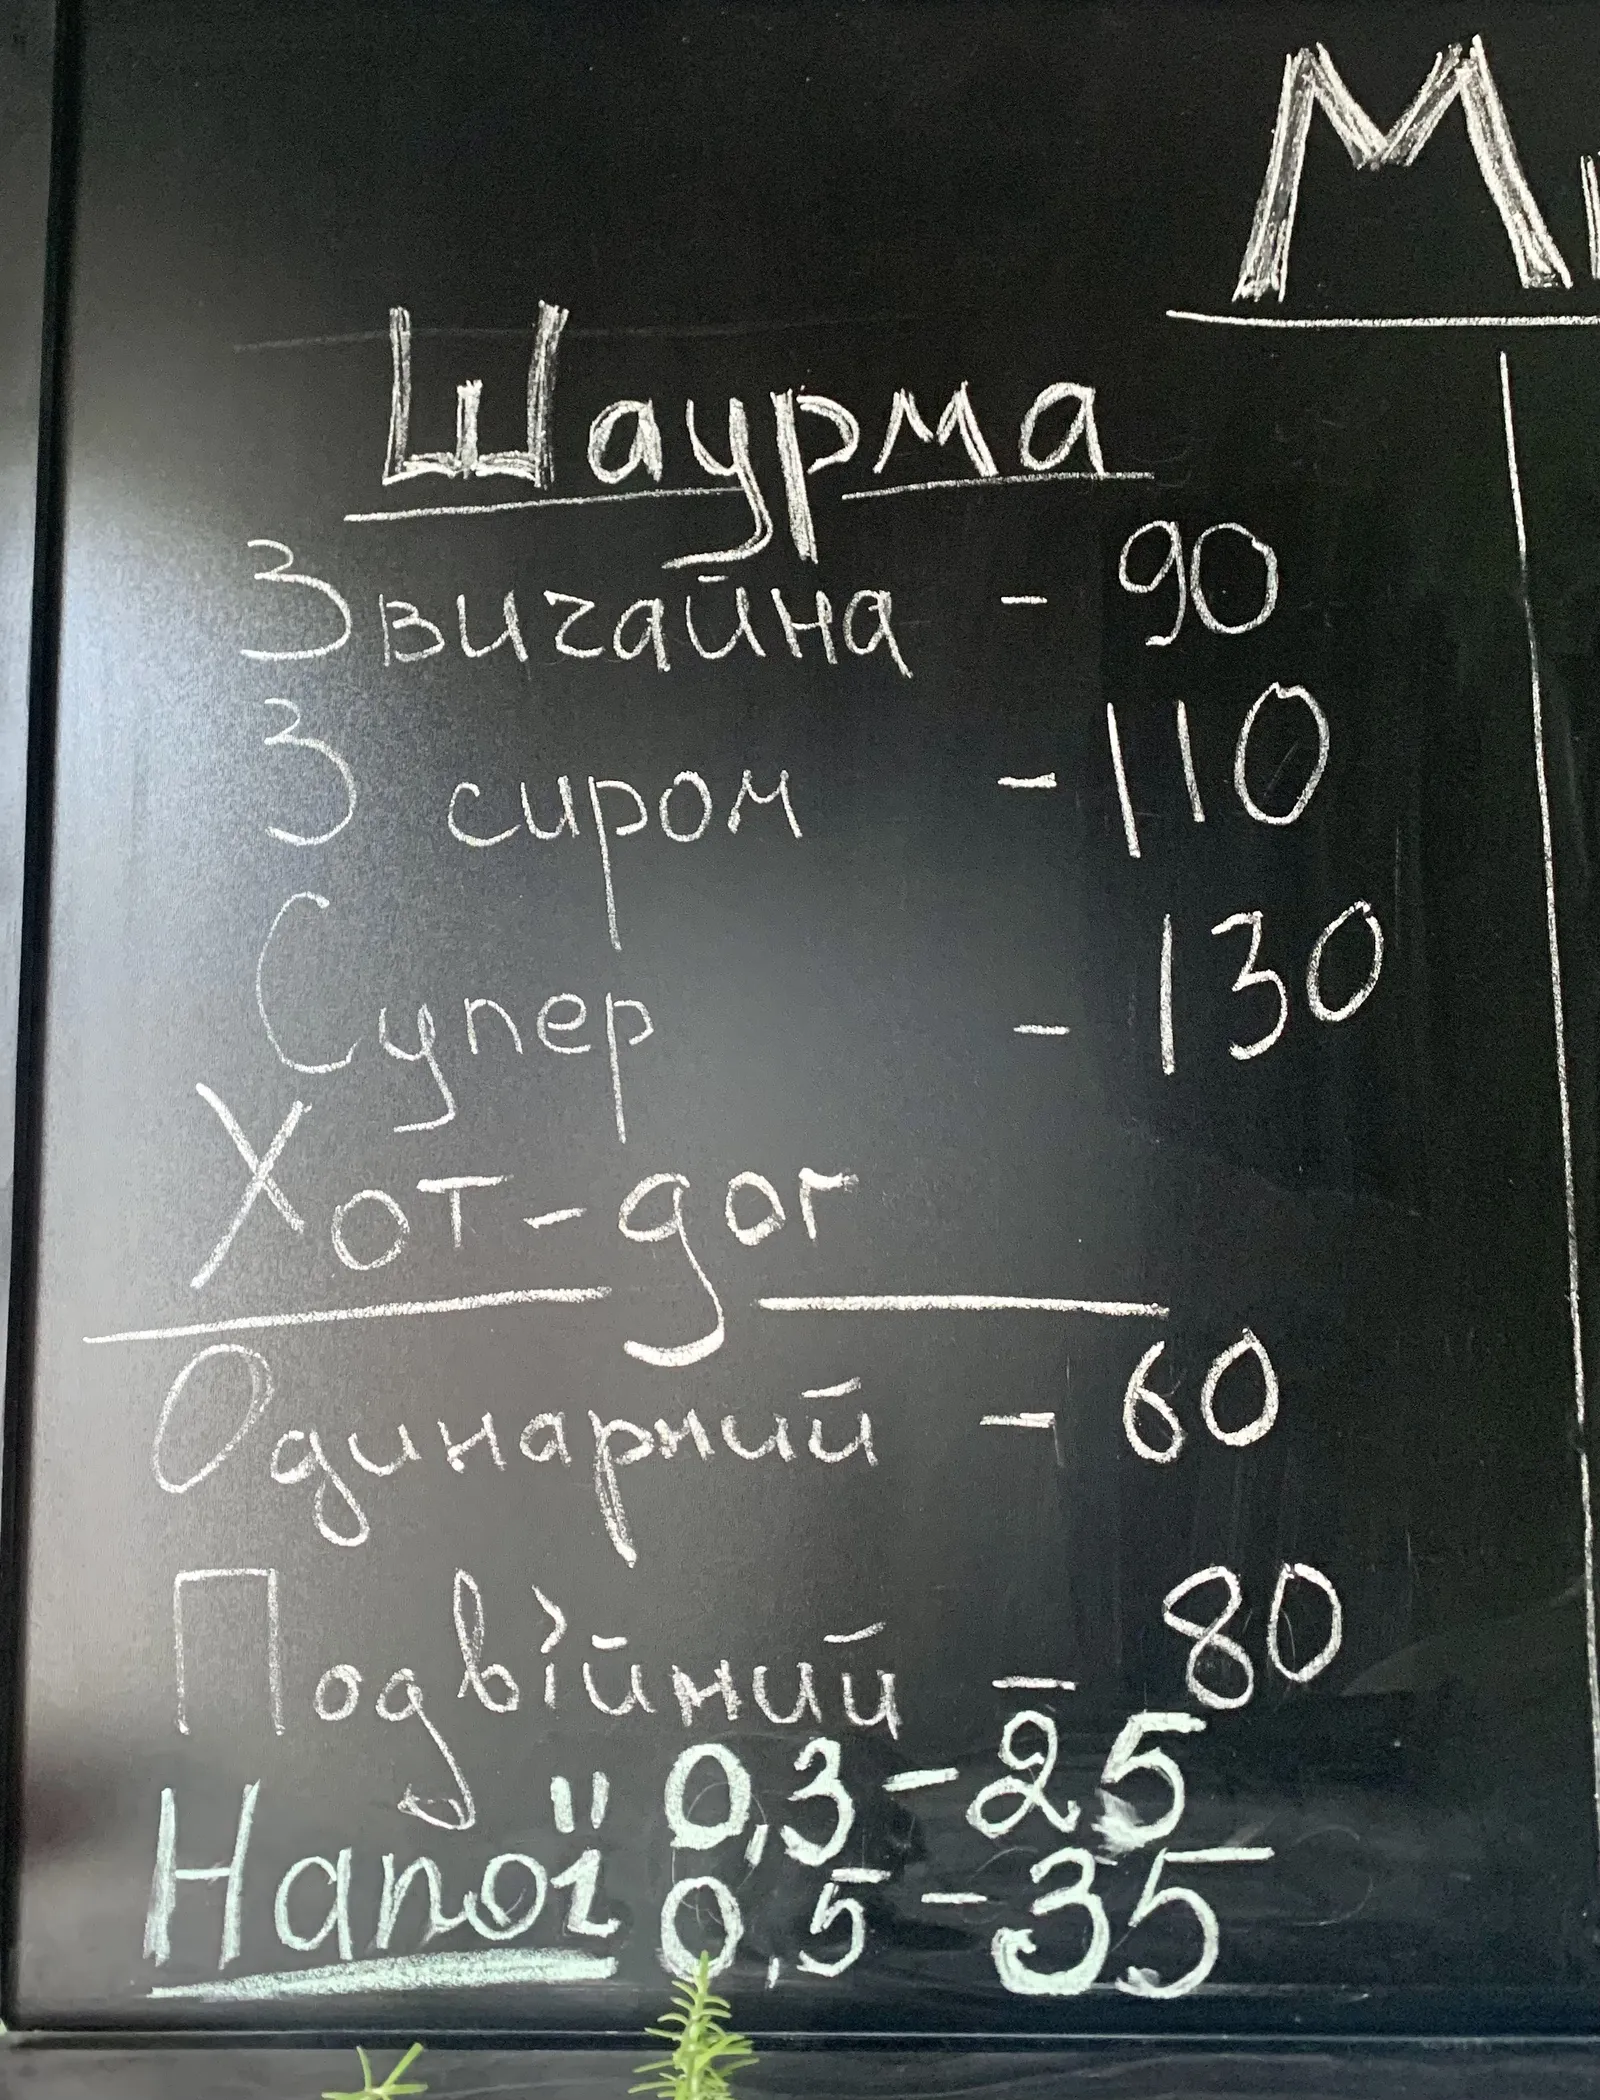 Шаурма
Звичайна - 90
З сиром - 110
Супер - 130
Хот-дог
Одинарний - 60
Подвійний - 80
Напої 0,3 - 25
0,5 - 35